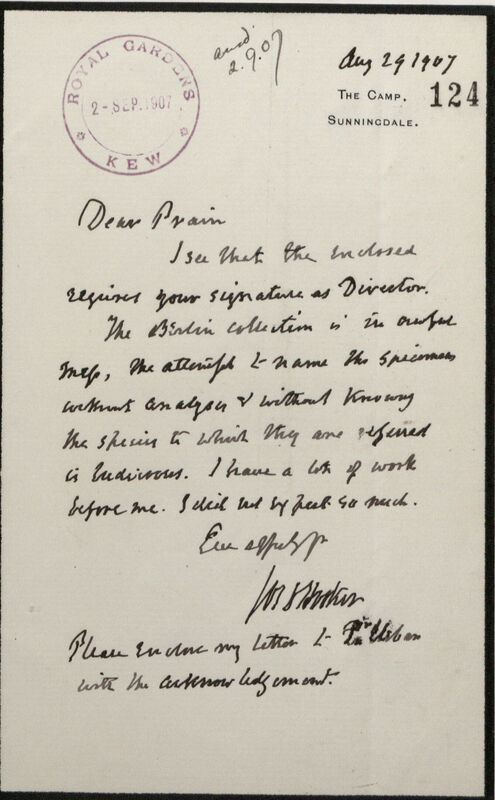 ROYAL GARDENS
2-SEP.1907
KEW
ansd
2.9.07
Aug 29 1907
THE CAMP,
SUNNINGDALE.
124
Dear Prain
I see that the enclosed
requires your signature as Director.
The Berlin collection is in awful
mess, the attempt to name the specimens
without analysis & without knowing
the species to which they are referred
is ludicrous. I have a lot of work
before me. I did not expect so much.
Ever affly yr
Jos D Hooker
Please enclose my letter to Dr Urban
with the acknowledgement.